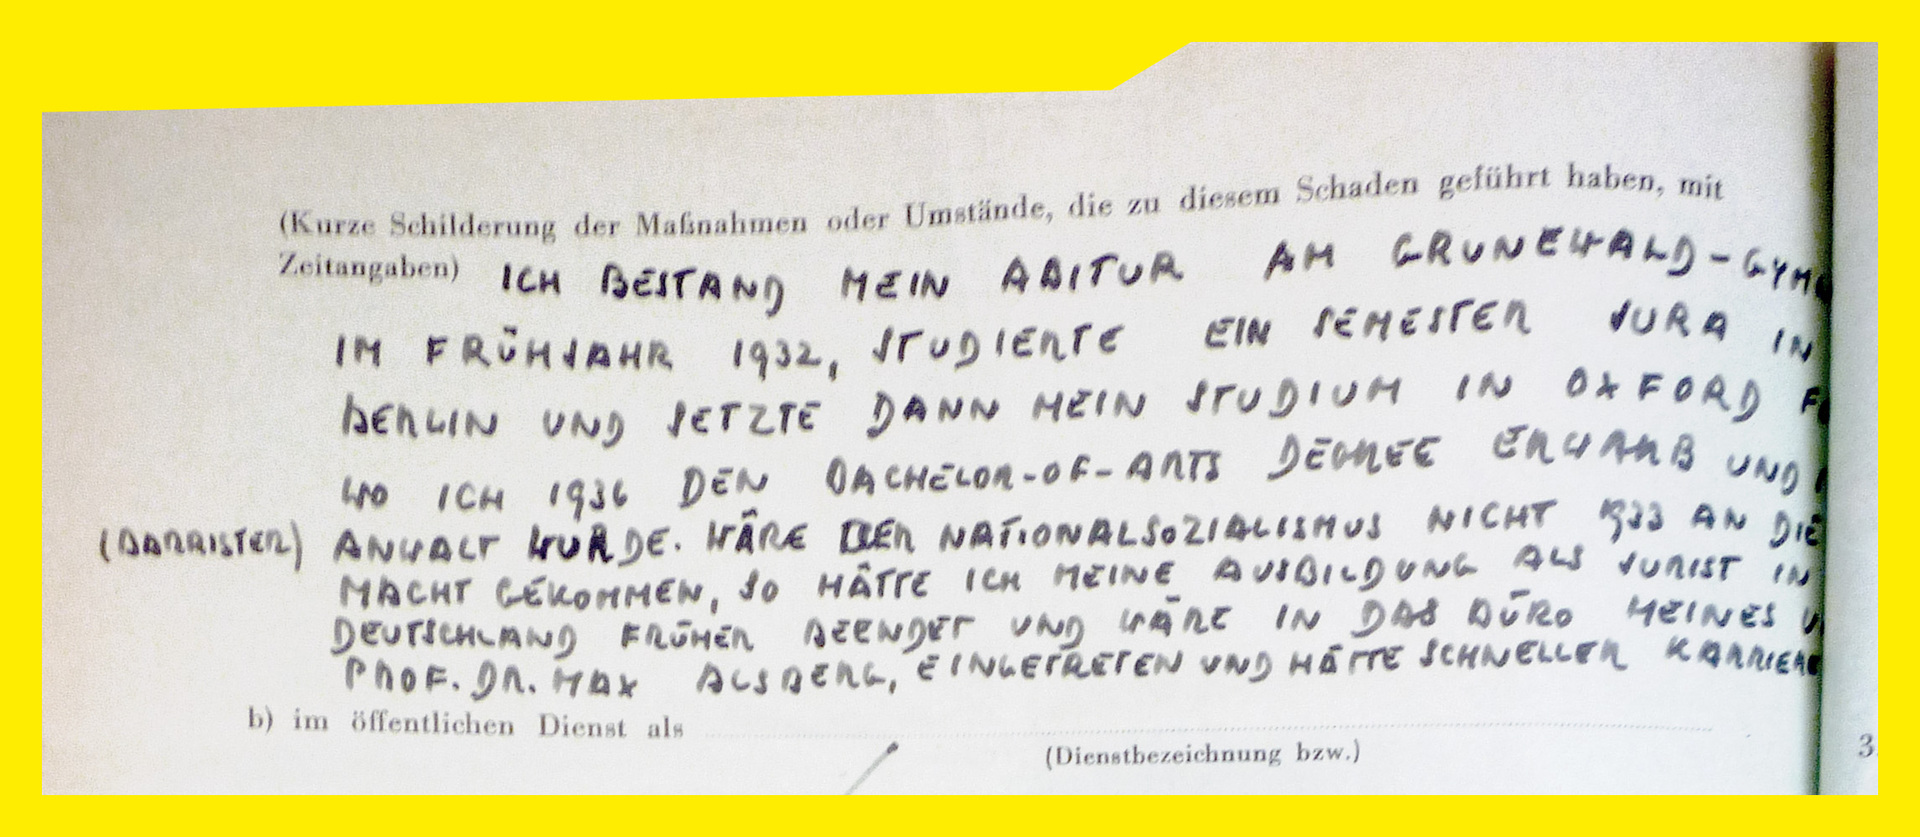 (Kurze Schilderung der Maßnahmen oder Umstände, die zu diesem Schaden geführt haben, mit
Zeitangaben) ICH BESTAND MEIN ABITUR AM GRUNEWALD-GYM
IM FRÜHJAHR 1932, STUDIERTE EIN SEMESTER JURA IN
BERLIN UND SETZTE DANN MEIN STUDIUM IN OXFORD F
WO ICH 1936 DEN BACHELOR-OF-ARTS DEGREE ERWARB UND
(BARRISTER) ANWALT WURDE. WÄRE DER NATIONALSOZIALISMUS NICHT 1933 AN DIE
MACHT GEKOMMEN, SO HÄTTE ICH MEINE AUSBILDUNG ALS JURIST IN
DEUTSCHLAND FRÜHER BEENDET UND WÄRE IN DAS BÜRO MEINES
PROF. DR. MAX ALSBERG, EINGETRETEN UND HÄTTE SCHNELLER KARRIERE
b) im öffentlichen Dienst als
(Dienstbezeichnung bzw.)
3